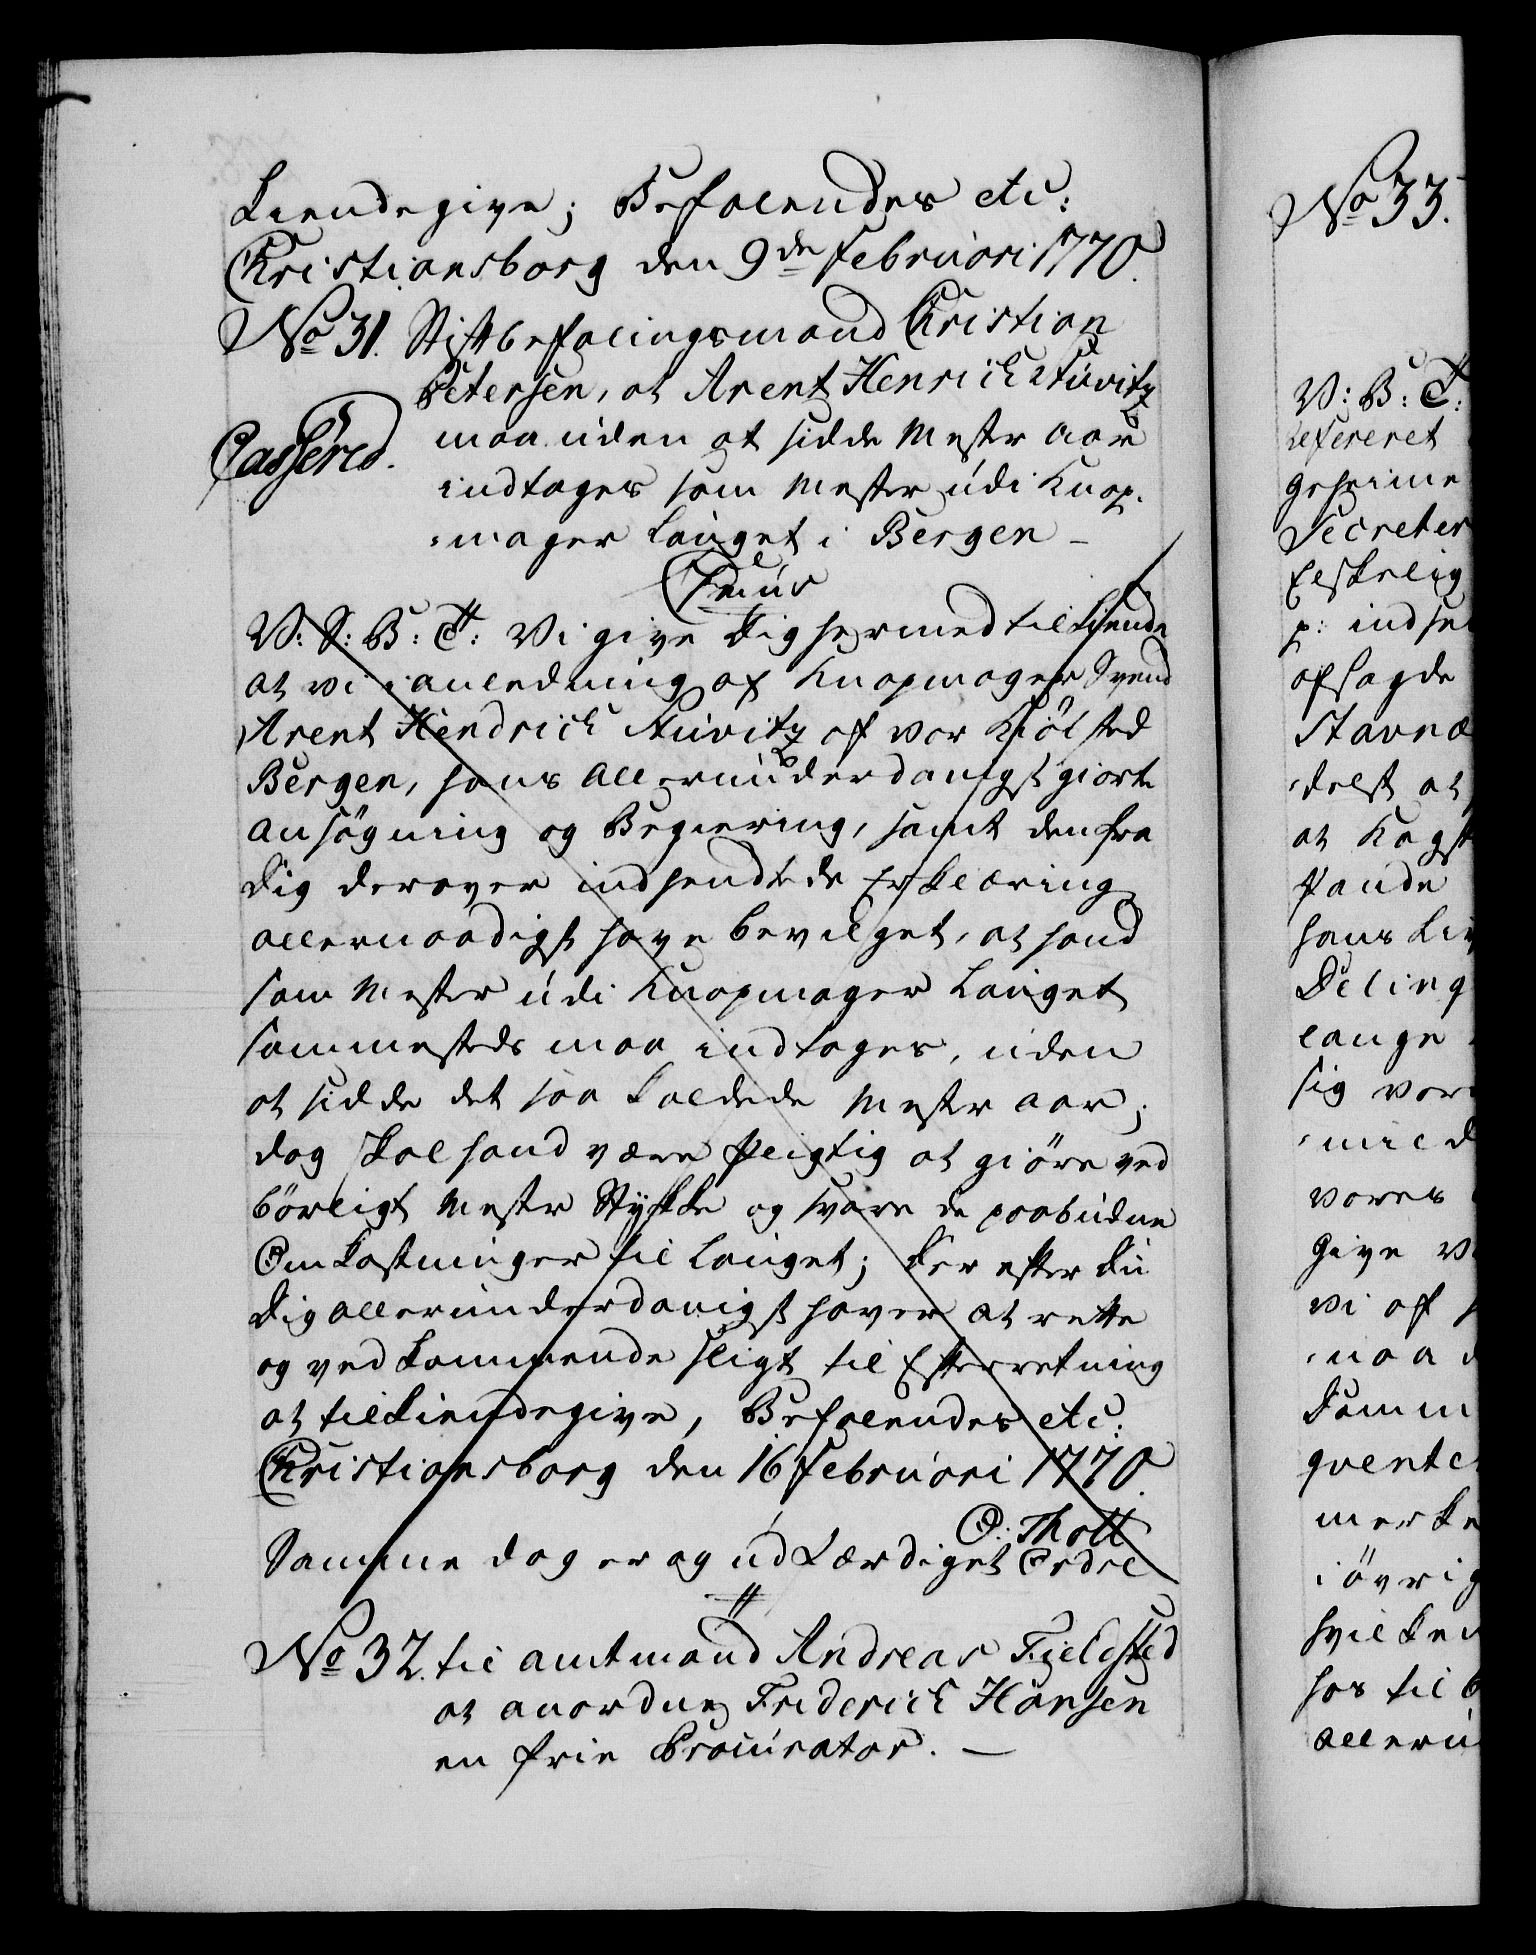 kiendegive; Befalendes etc:
Christiansborg den 9de Februari 1770.
No 31. Stiftbefalingsmand Christian
Petersen, at Arent Henrich Stüvitz
Casseres.
maa uden at sidde Mester aar
indtages som Mester udi Knap-
-mager Lauget i Bergen -
C7mus
V: S: B: T: Vi give Dig hermed tilkiende
at vi i anledning af Knapmager Svend
Arent Hendrich Stüvitz af vor Kiöbsted
Bergen, hans allerunderdanigst giorte
ansögning og Begiering, samt den fra
Dig derover indsendte de Erklæring
allernaadigst have bevilget, at hand
som Mester udi Knapmager Lauget
sammesteds maa indtages, uden
at sidde det saa kaldede Mester aar;
dog skal hand være pligtig at giöre ved
börligt Mester Stykke og svare de paabudne
Omkostninger til Lauget; Der efter Du
Dig allerunderdanigst haver at rette
og vedkommende sligt til Efterretning
at tilkiendegive, Befalendes etc:
Christiansborg den 16 Februari 1770.
O: Thott
Samme dag er og udfærdiget Ordre
No 32. til amtmand Andreas Fieldsted
at anordne Friderich Hansen
en frie Procurator. —
No 33.
V: B: T:
refereret
geheime
Secreter
Elskelig
p: indse
afsagde
Stavnæ
-delst at
at Kagst
Pande
hans Liv
Deling
lange
sig vor
-mild
vores
Give V
vi af
-naa
Domm
qvente
merke
i övrig
hvilken
hos til b
alleru